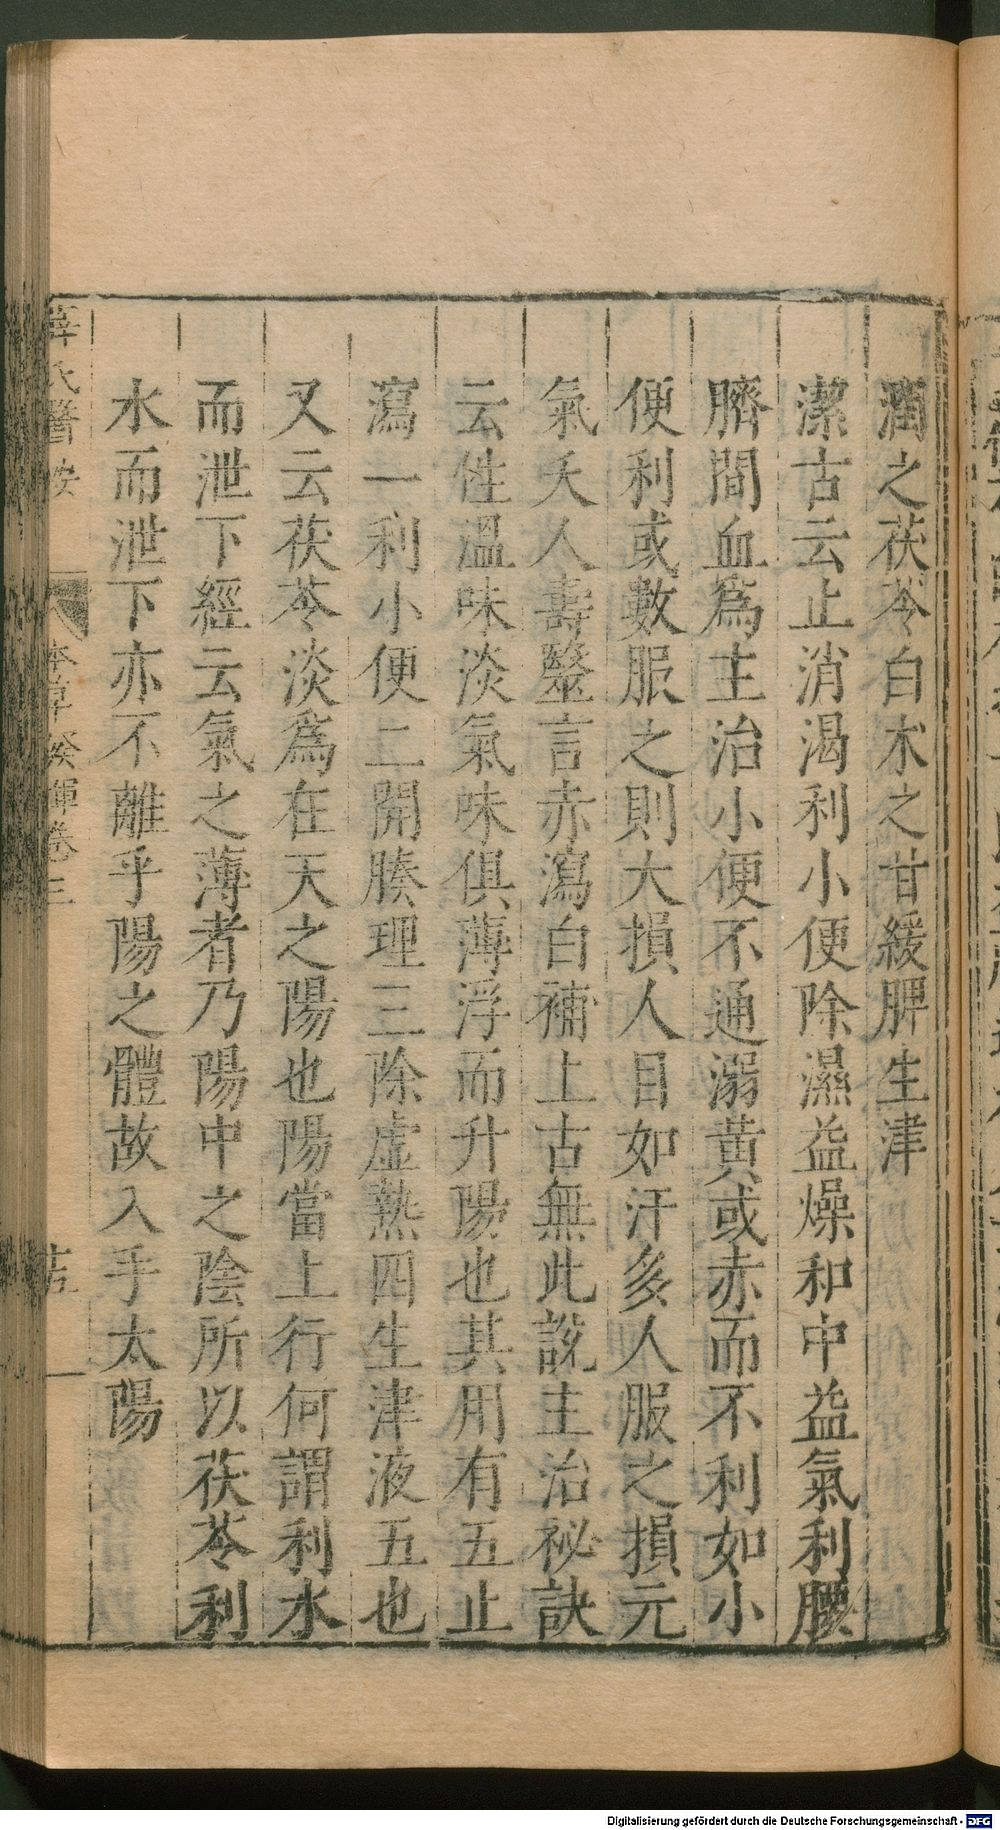 潤之茯苓白朮之甘緩脾生津
潔古云止消渴利小便除濕益燥和中益氣利腰
臍間血爲主治小便不通溺黃或赤而不利如小
便利或數服之則大損人目如汗多人服之損元
氣夭人壽毉言赤瀉白補上古無此說主治祕訣
云性溫味淡氣味俱薄浮而升陽也其用有五止
瀉一利小便二開腠理三除虛熱四生津液五也
又云茯苓淡爲在天之陽也陽當上行何謂利水
而泄下經云氣之薄者乃陽中之陰所以茯苓利
水而泄下亦不離乎陽之體故入手太陽
薛氏醫按 本草發揮卷三
Digitalisierung gefördert durch die Deutsche Forschungsgemeinschaft - DFG